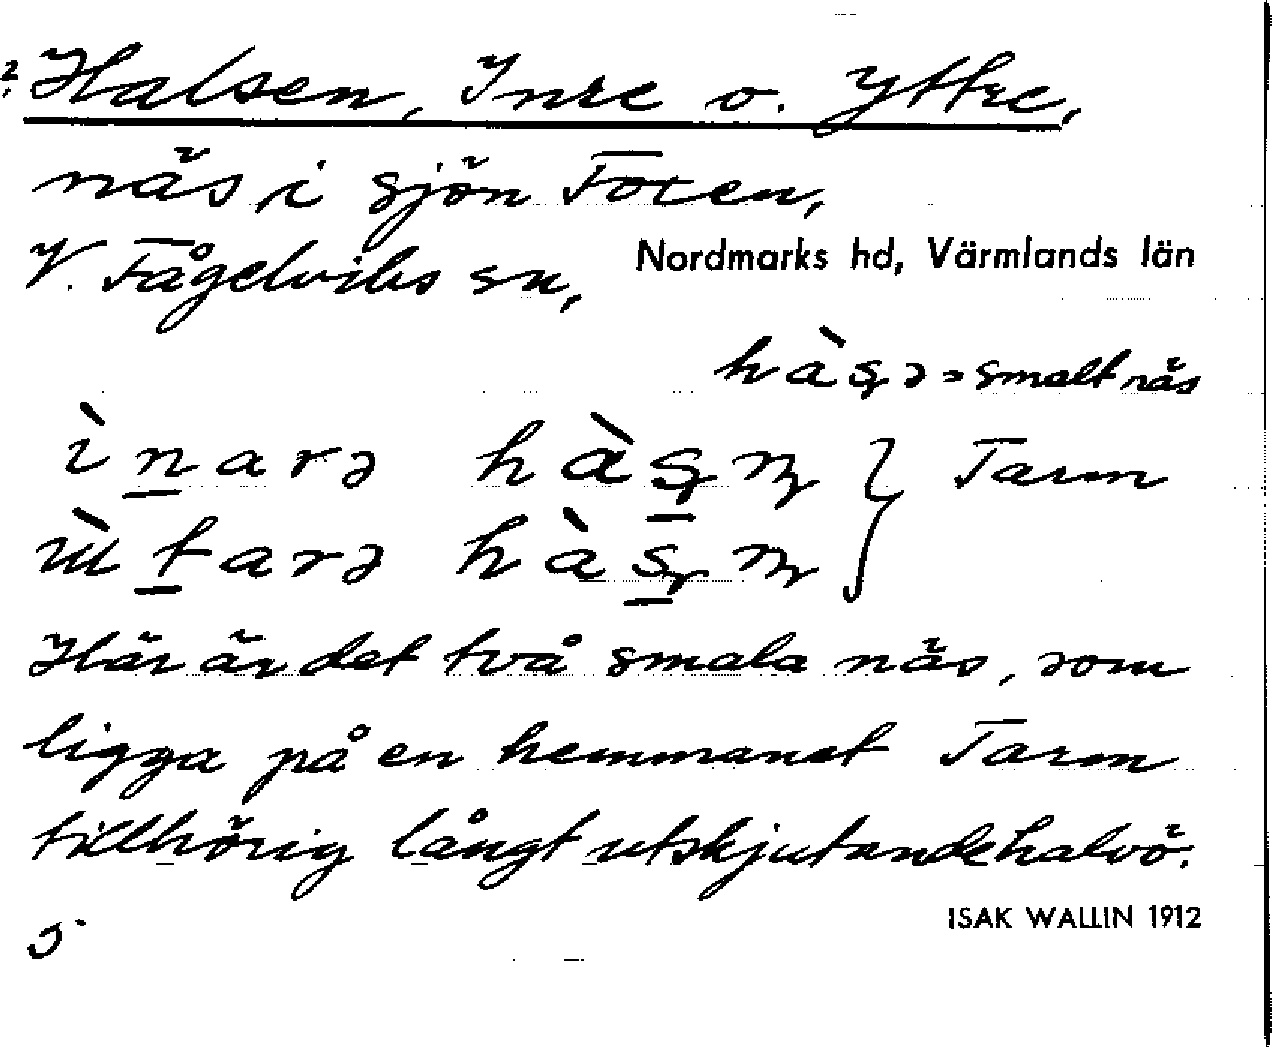 ? Halsen, Inre o. Yttre,
näs i sjön Foxen,
V. Fågelviks sn, Nordmarks hd, Värmlands län
hàʂə = smalt näs
ìnarə hàʂn̩ } Tarm
ùtarə hàʂn̩
Här är det två smala näs, som
ligga på en hemmanet Tarm
tillhörig långt utskjutande halvö.
ISAK WALLIN 1912